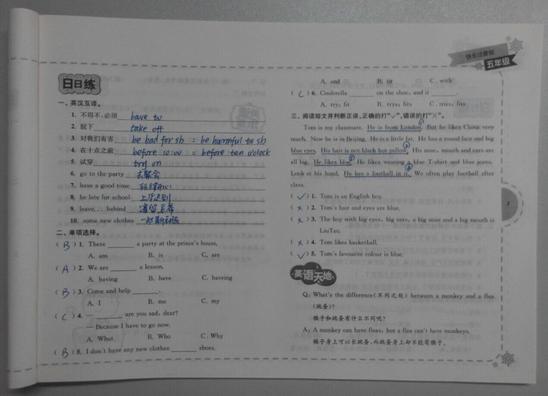 快乐过暑假
五年级
日日练
一、英汉互译。
1. 不得不,必须 have to
2. 脱下 take off
3. 对我们有害 be bad for sb = be harmful to sb
4. 在十点之前 before 10:00 = before ten o'clock
5. 试穿 try on
6. go to the party 去聚会
7. have a good time
8. be late for school 上学迟到
9. leave... behind
10. some new clothes 一些新衣服
二、单项选择。
( B ) 1. There a party at the prince's house.
A. am B. is C. are
( A ) 2. We are a lesson.
A. having B. have C. haveing
( B ) 3. Come and help .
A. I B. me C. my
( C ) 4. — are you sad, dear?
— Because I have to go now.
A. What B. Who C. Why
( B ) 5. I don't have any new clothes shoes.
A. and B. or C. with
( C ) 6. Cinderella on the shoe, and it .
A. try; fit B. trys; fits C. tries; fits
三、阅读短文并判断正误,正确的打"✓",错误的打"×"。
Tom is my classmate. He is from London. But he likes China very
much. Now he is in Beijing. He is a little fat. He has a round face and big
blue eyes. His hair is not black but yellow. His nose, mouth and ears are
all big. He likes blue. He likes wearing a blue T-shirt and blue jeans.
Look at his hand. He has a football in it. We often play football after
class.
( ✓ ) 1. Tom is an English boy.
( × ) 2. Tom's hair and eyes are blue.
( × ) 3. The boy with big eyes, big ears, a big nose and a big mouth is
LiuTao.
( × ) 4. Tom likes basketball.
( ✓ ) 5. Tom's favourite colour is blue.
英语天地
Q: What's the difference (不同之处) between a monkey and a flea
(跳蚤)?
猴子和跳蚤有什么不同呢?
A: A monkey can have fleas, but a flea can't have monkeys.
猴子身上可以长跳蚤,而跳蚤身上却不能有猴子。